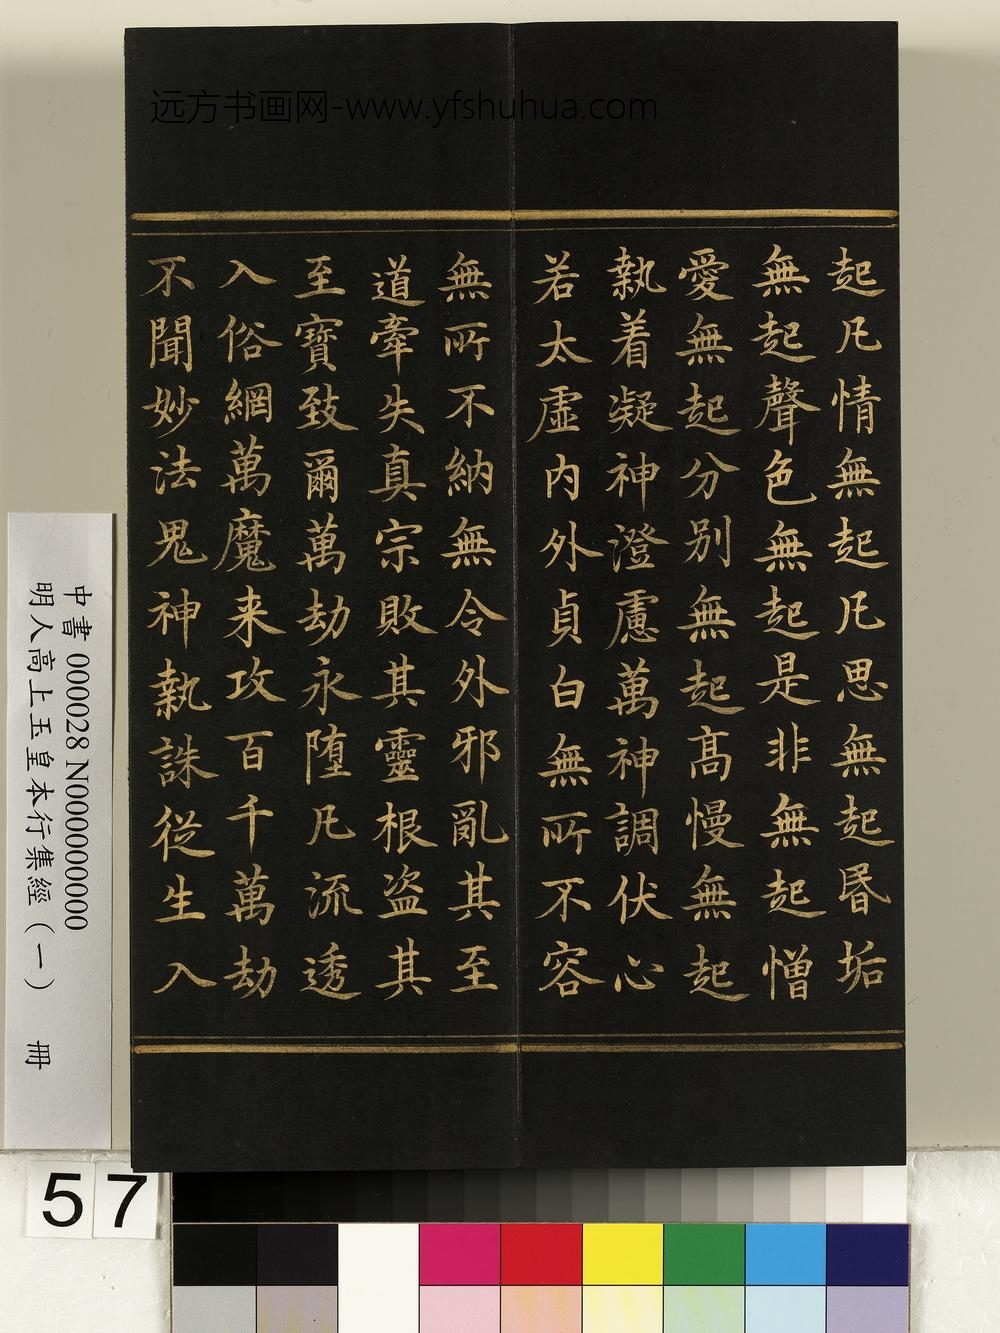 远方书画网-www.yfshuhua.com
起凡情無起凡思無起昬垢
無起聲色無起是非無起憎
愛無起分别無起高慢無起
執着凝神澄慮萬神調伏心
若太虛内外貞白無所不容
無所不納無令外邪亂其至
道牽失真宗敗其靈根盗其
至寳致爾萬劫永堕凡流透
入俗網萬魔来攻百千萬劫
不聞妙法鬼神執誅從生入
中書 000028 N000000000
明人高上玉皇本行集經（一） 冊
57